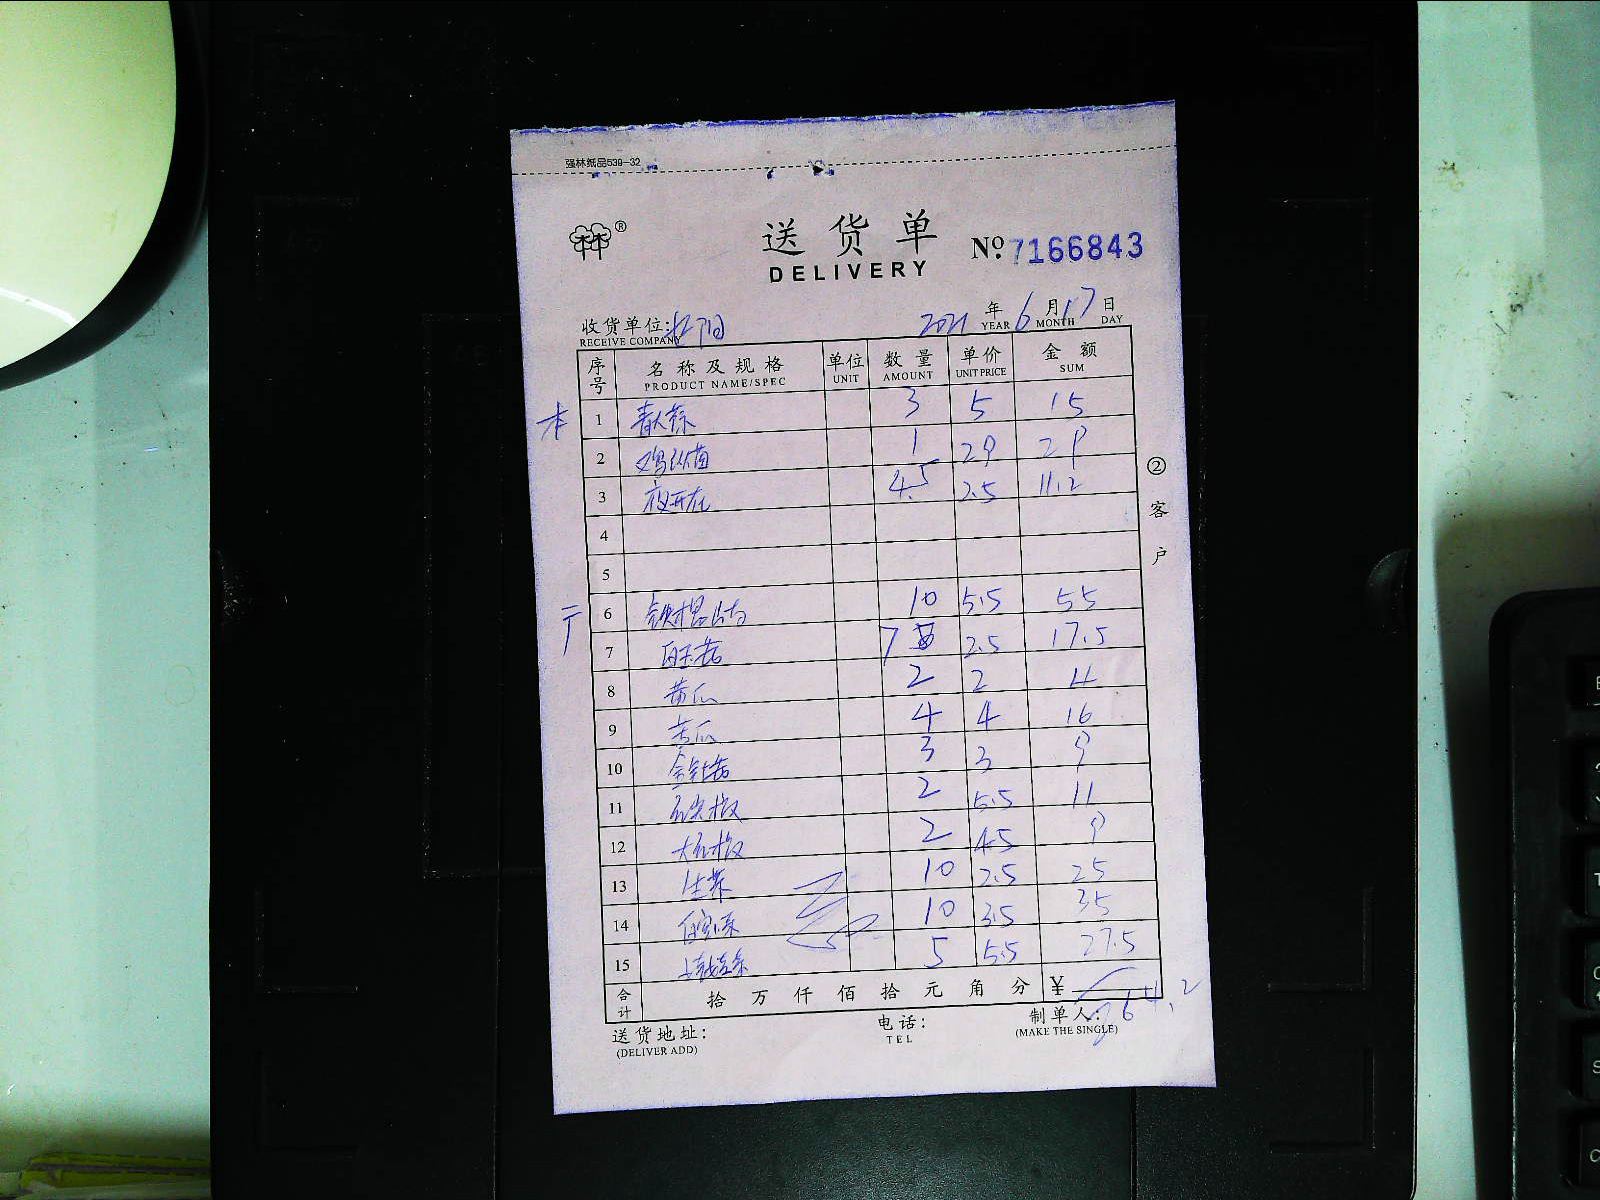 强林纸品539-32
®
送货单
DELIVERY
№: 7166843
收货单位:
RECEIVE COMPANY
2021 年 6 月 17 日
YEAR MONTH DAY
序号 名称及规格 单位 数量 单价 金额
PRODUCT NAME/SPEC UNIT AMOUNT UNIT PRICE SUM
1 3 5 15
2 鸡纵菌 1 29 29
3 夜开花 4.5 2.5 11.2
4
5
6 铁棍山药 10 5.5 55
7 白玉菇 7 2.5 17.5
8 黄瓜 2 2 4
9 苦瓜 4 4 16
10 金针菇 3 3 9
11 2 5.5 11
12 大红椒 2 4.5 9
13 生菜 10 2.5 25
14 10 3.5 35
15 5 5.5 27.5
合计 拾万仟佰拾元角分 ¥ 264.2
送货地址:
(DELIVER ADD)
电话:
TEL
制单人:
(MAKE THE SINGLE)
②客户